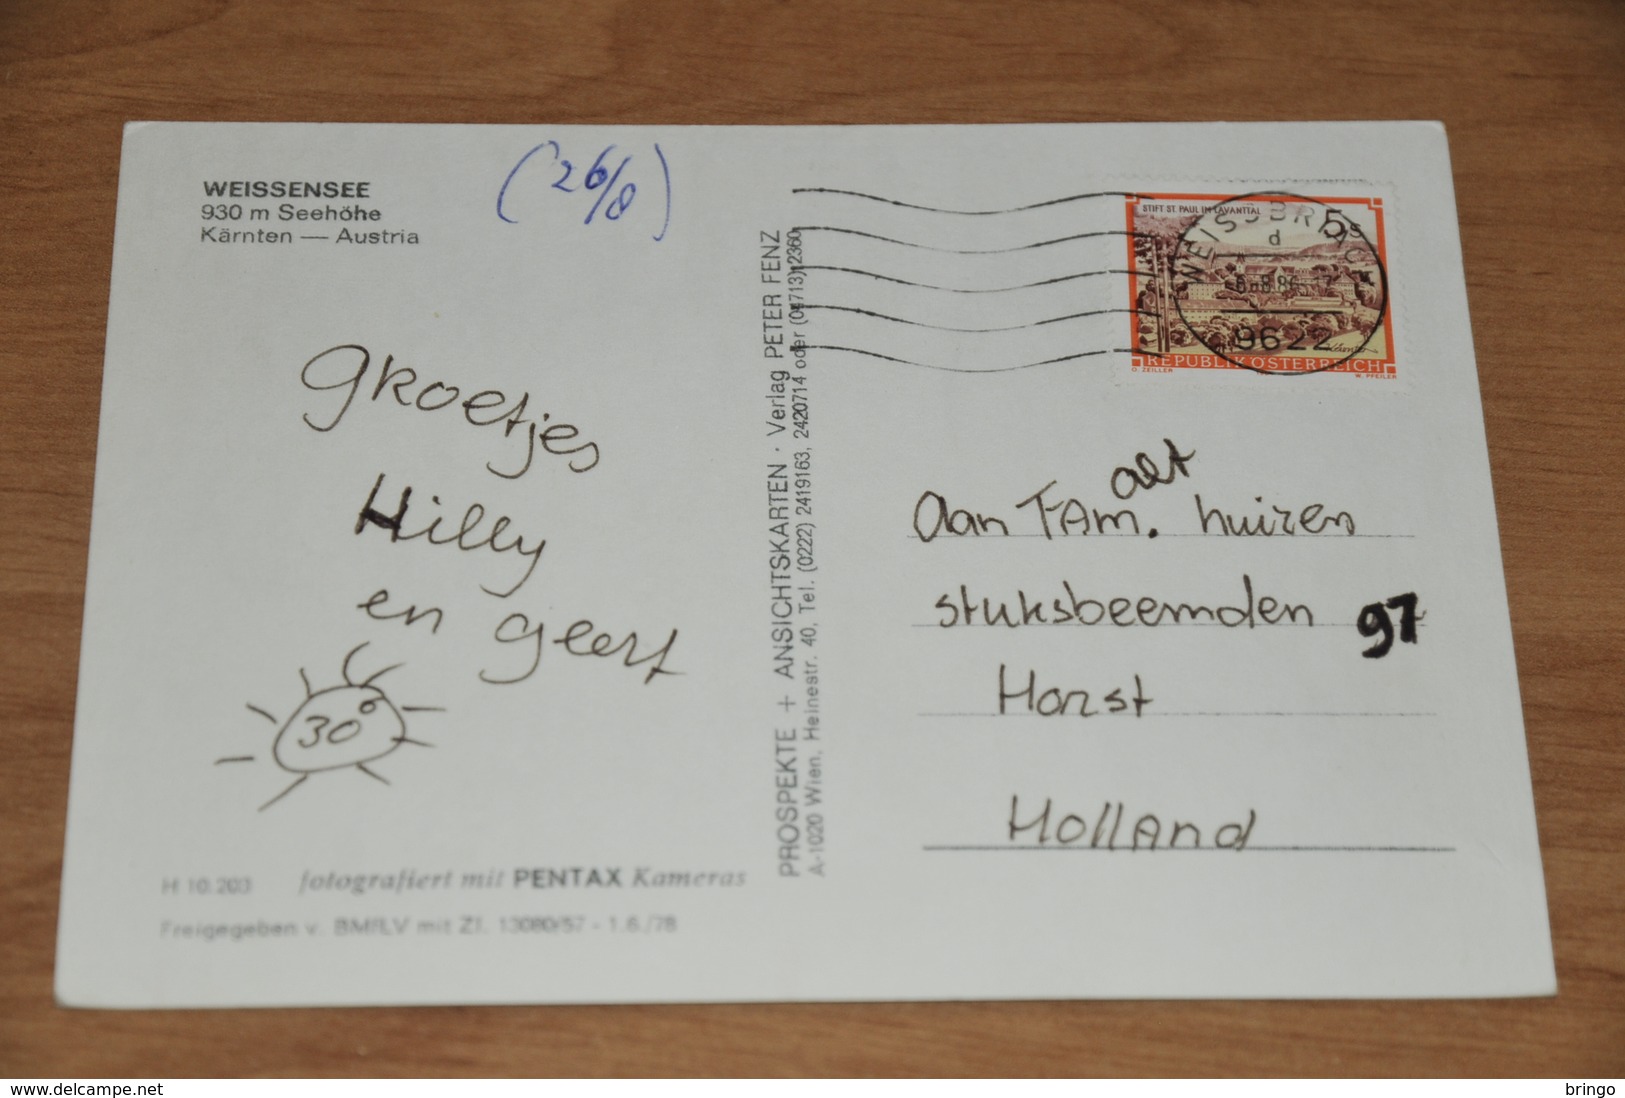 WEISSENSEE
930 m Seehöhe
Kärnten — Austria
(26/8)
groetjes
Hilly
en geert
30°
H 10.203 fotografiert mit PENTAX Kameras
Freigegeben v. BMfLV mit Zl. 13080/57 - 1.6./78
PROSPEKTE + ANSICHTSKARTEN · Verlag PETER FENZ
A-1020 Wien, Heinestr. 40, Tel. (0222) 2419163, 2420714 oder (04713) 2360
STIFT ST. PAUL IM LAVANTTAL
5s
REPUBLIK ÖSTERREICH
O. ZEILLER W. PFEILER
WEISSBRIACH
d
9622
alt
Aan FAm. huizen
stuksbeemden 97
Horst
Holland
www.delcampe.net
bringo